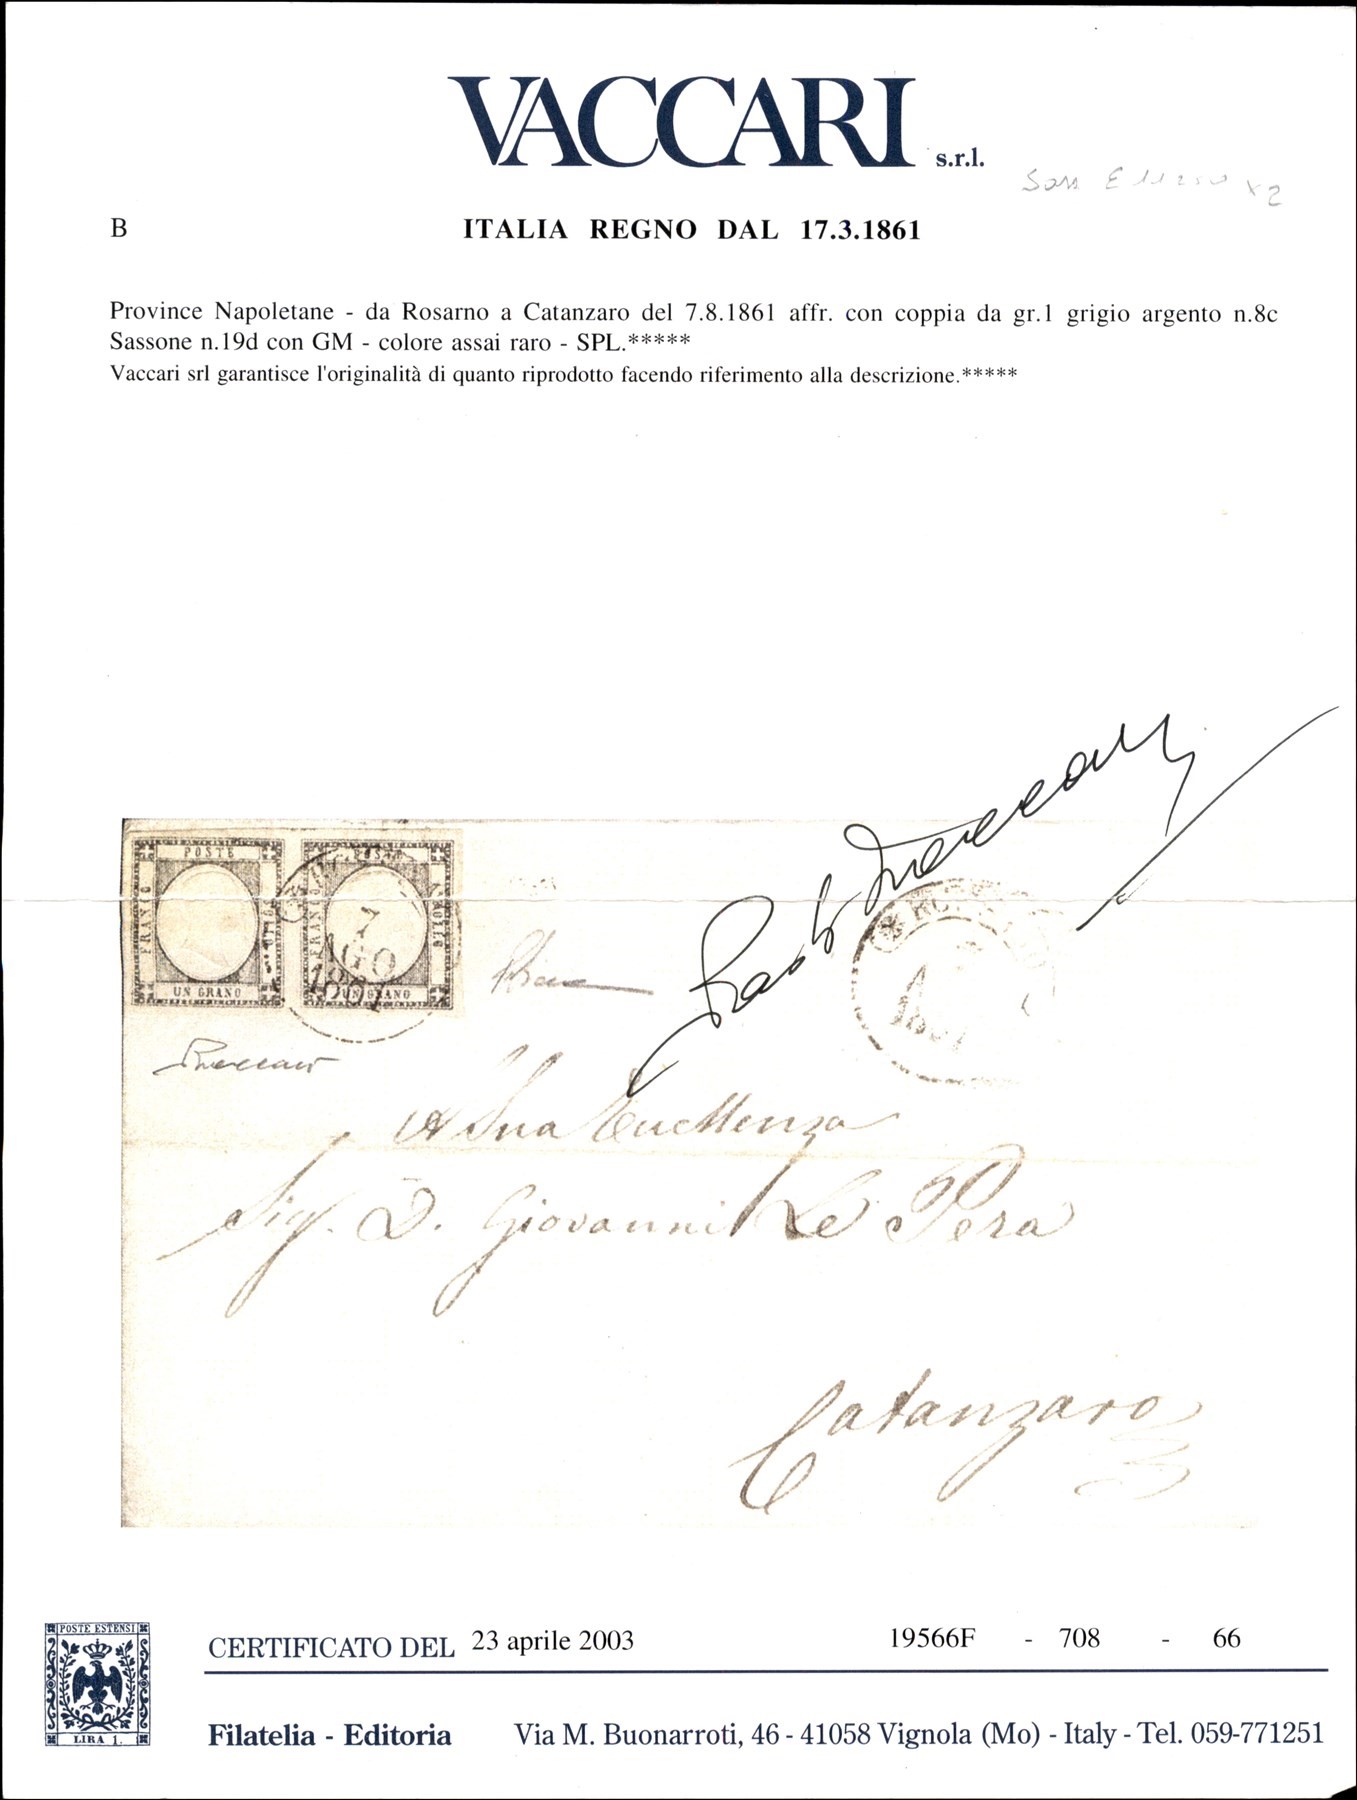 VACCARI s.r.l.
B
ITALIA REGNO DAL 17.3.1861
Province Napoletane - da Rosarno a Catanzaro del 7.8.1861 affr. con coppia da gr.1 grigio argento n.8c
Sassone n.19d con GM - colore assai raro - SPL.*****
Vaccari srl garantisce l'originalità di quanto riprodotto facendo riferimento alla descrizione.*****
POSTE
FRANCO
UN GRANO
FRANCO
UN GRANO
7
AGO
1861
A Sua Eccellenza
Sig. D. Giovanni Le Pera
Catanzaro
POSTE ESTENSI
LIRA 1.
CERTIFICATO DEL 23 aprile 2003 19566F - 708 - 66
Filatelia - Editoria Via M. Buonarroti, 46 - 41058 Vignola (Mo) - Italy - Tel. 059-771251